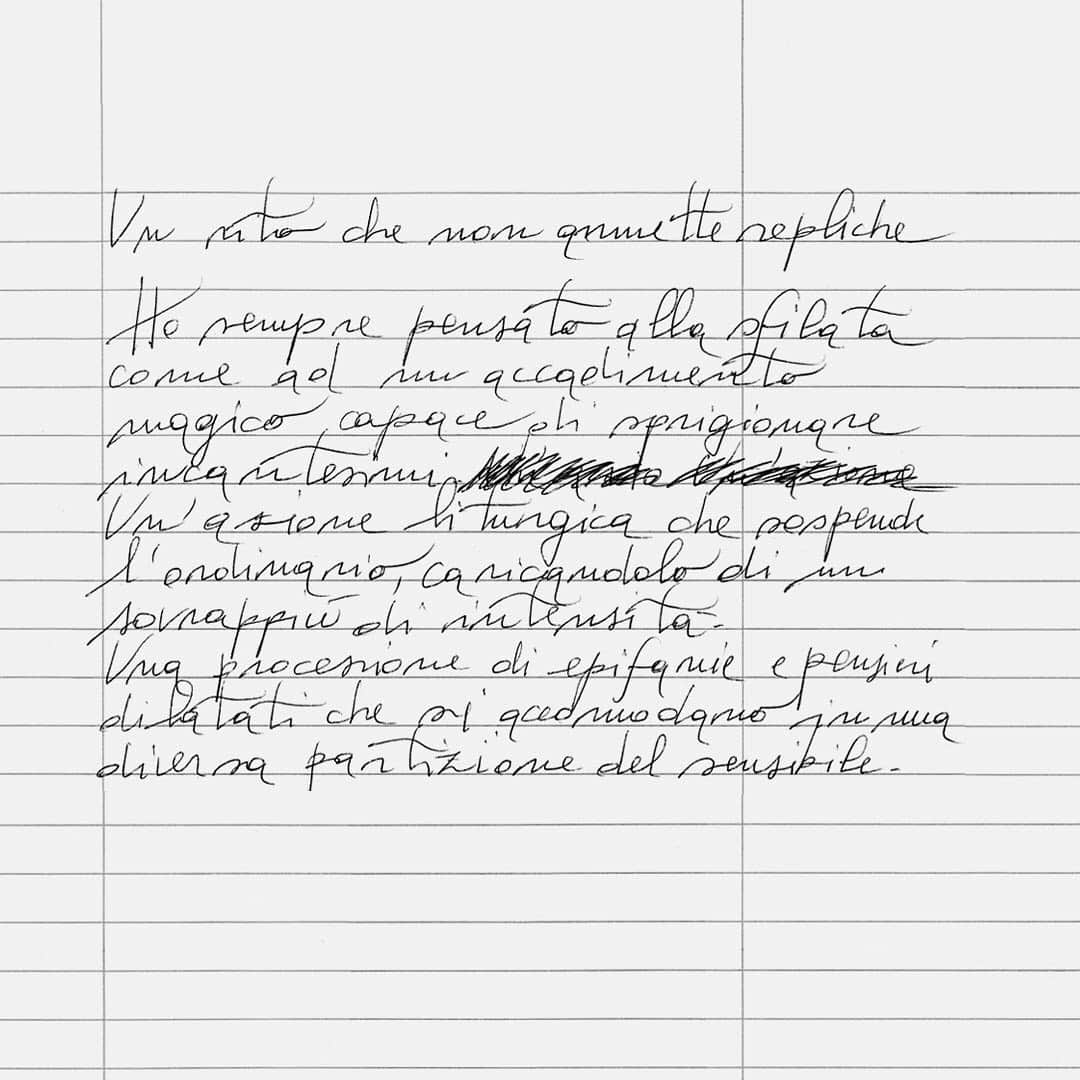 Un rito che non ammette repliche
Ho sempre pensato alla sfilata
come ad un accadimento
magico, capace di sprigionare
incantesimi.
Un'azione liturgica che sospende
l'ordinario, caricandolo di un
sovrappiù di intensità.
Una processione di epifanie e pensieri
dilatati che si accomodano in una
diversa partizione del sensibile.